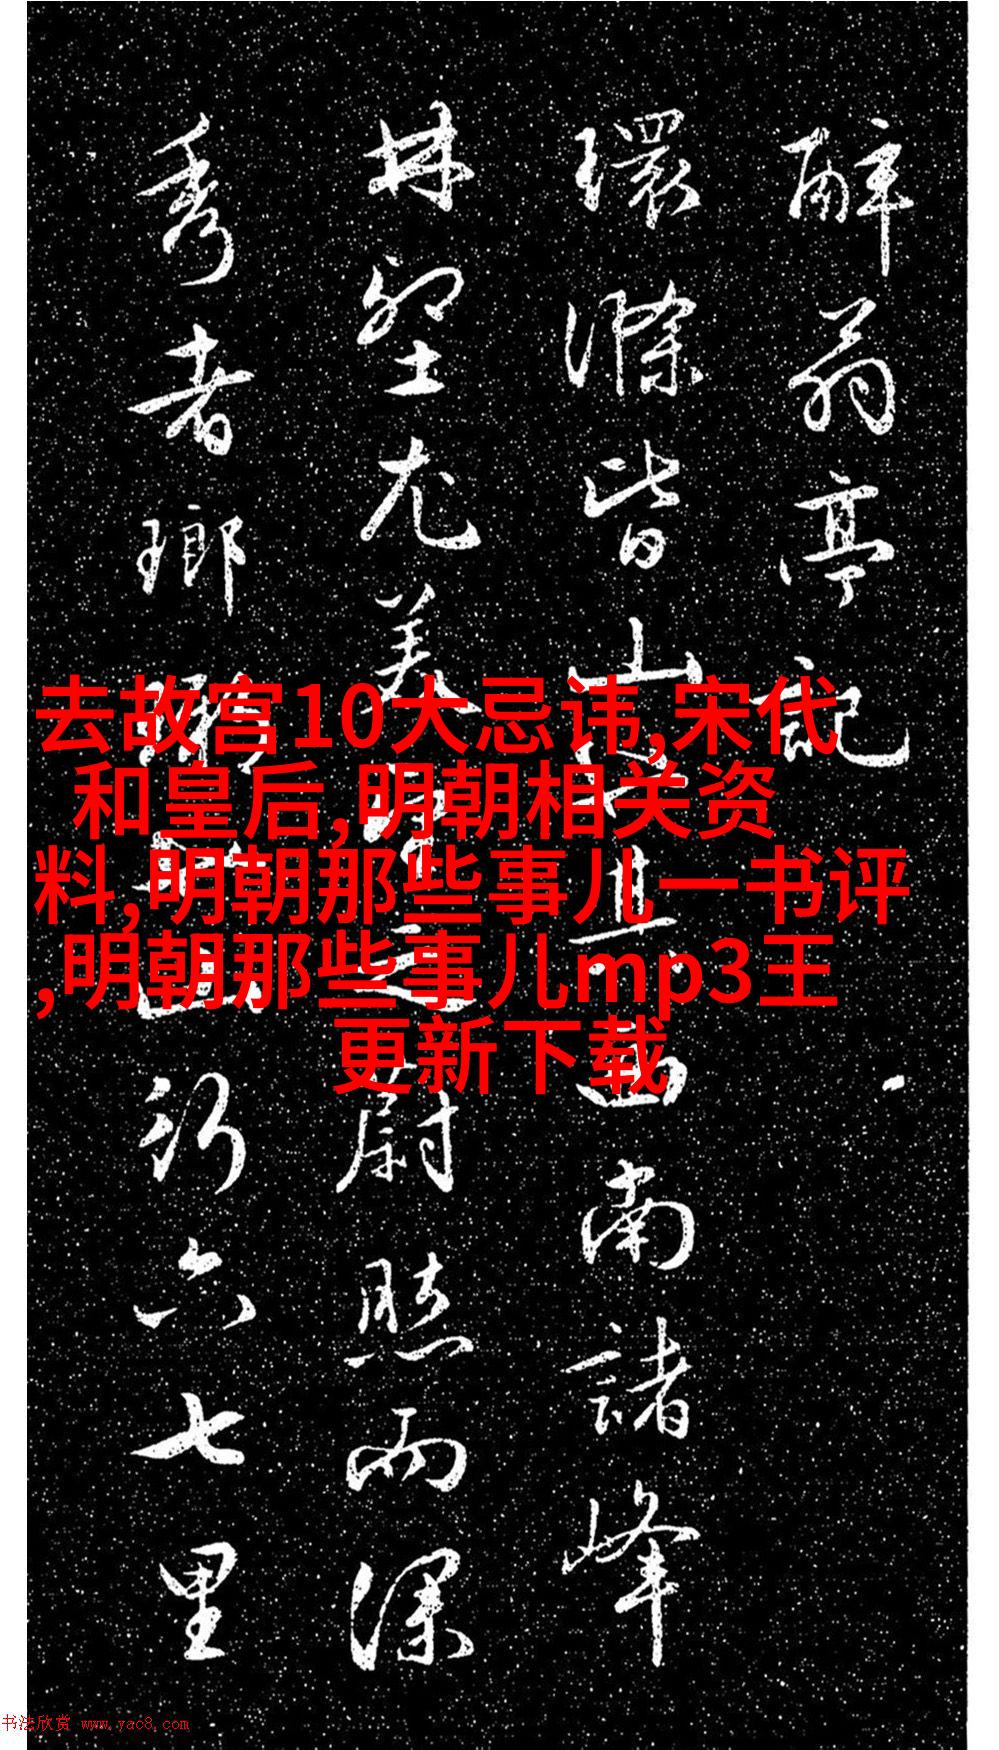 醉翁亭記
環滁皆山也其西南諸峰
林壑尤美望之蔚然而深
秀者瑯琊也山行六七里
去故宫10大忌讳,宋代
和皇后,明朝相关资
料,明朝那些事儿一书评
,明朝那些事儿mp3王
更新下载
书法欣赏 www.yac8.com